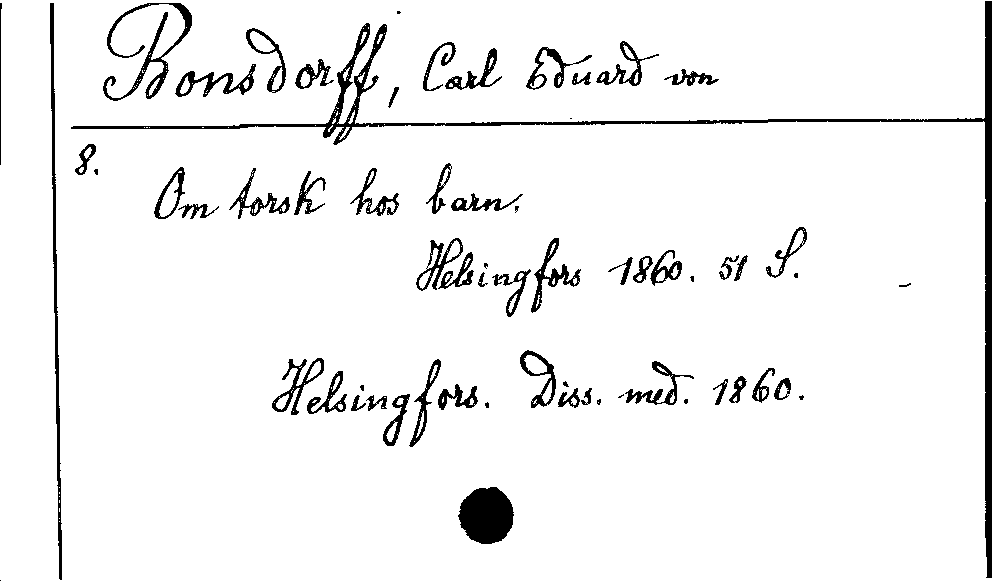 Bonsdorff, Carl Eduard von
8.
Om torsk hos barn.
Helsingfors 1860. 51 S.
Helsingfors. Diss. med. 1860.